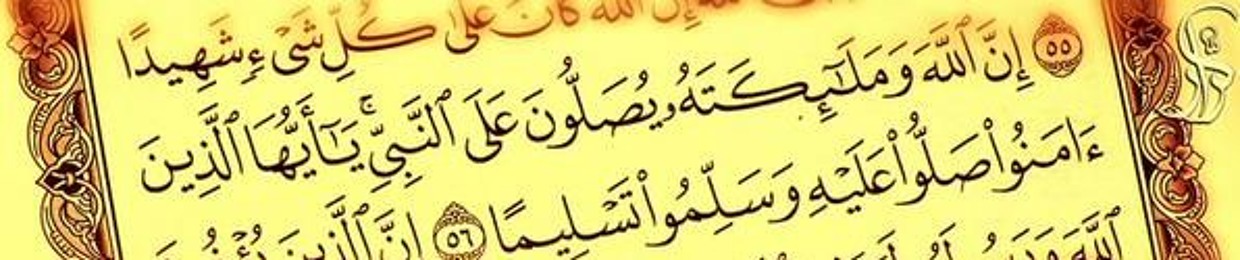 إِنَّ ٱللَّهَ كَانَ عَلَىٰ كُلِّ شَىْءٍ شَهِيدًا
۝٥٥ إِنَّ ٱللَّهَ وَمَلَـٰٓئِكَتَهُۥ يُصَلُّونَ عَلَى ٱلنَّبِىِّ ۚ يَـٰٓأَيُّهَا ٱلَّذِينَ
ءَامَنُوا۟ صَلُّوا۟ عَلَيْهِ وَسَلِّمُوا۟ تَسْلِيمًا ۝٥٦ إِنَّ ٱلَّذِينَ يُؤْذُونَ
ٱللَّهَ وَرَسُولَهُۥ